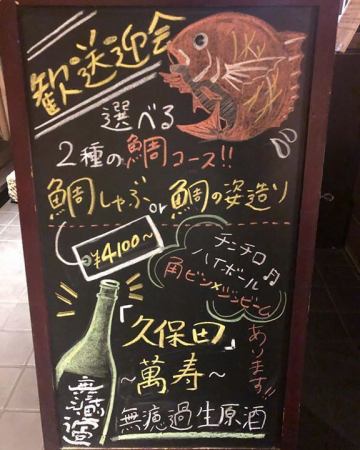 歓送迎会
選べる
2種の鯛コース!!
鯛しゃぶ or 鯛の姿造り
¥4100~
チンチロ
ハイボール♫
角ビン×ジンビーム
あります!!
「久保田」
~萬寿~
無濾過生原酒
無濾過